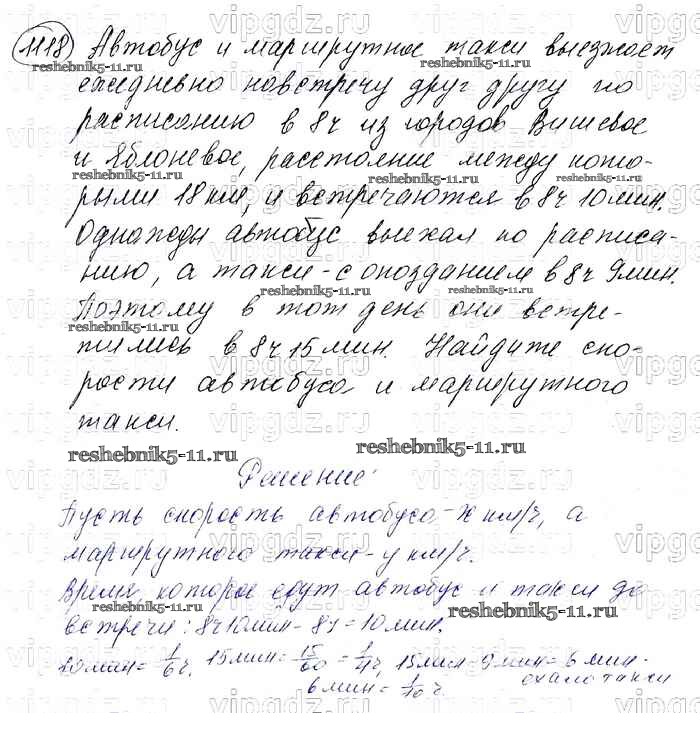 1118 Автобус и маршрутное такси выезжает
ежедневно навстречу друг другу по
расписанию в 8ч из городов Вишевое
и Яблоневое, расстояние между кото-
рыми 18 км, и встречаются в 8ч 10мин.
Однажды автобус выехал по расписа-
нию, а такси - с опозданием в 8ч 9мин.
Поэтому в тот день они встре-
тились в 8ч 15 мин. Найдите ско-
рости автобуса и маршрутного
такси.
Решение:
Пусть скорость автобуса - x км/ч, а
маршрутного такси - y км/ч.
Время, которое едут автобус и такси до
встречи: 8ч10мин - 8ч = 10мин.
10мин = 1/6 ч, 15мин = 15/60 = 1/4 ч, 15мин - 9мин = 6 мин -
6 мин = 1/10 ч ехало такси
vipgdz.ru
reshebnik5-11.ru